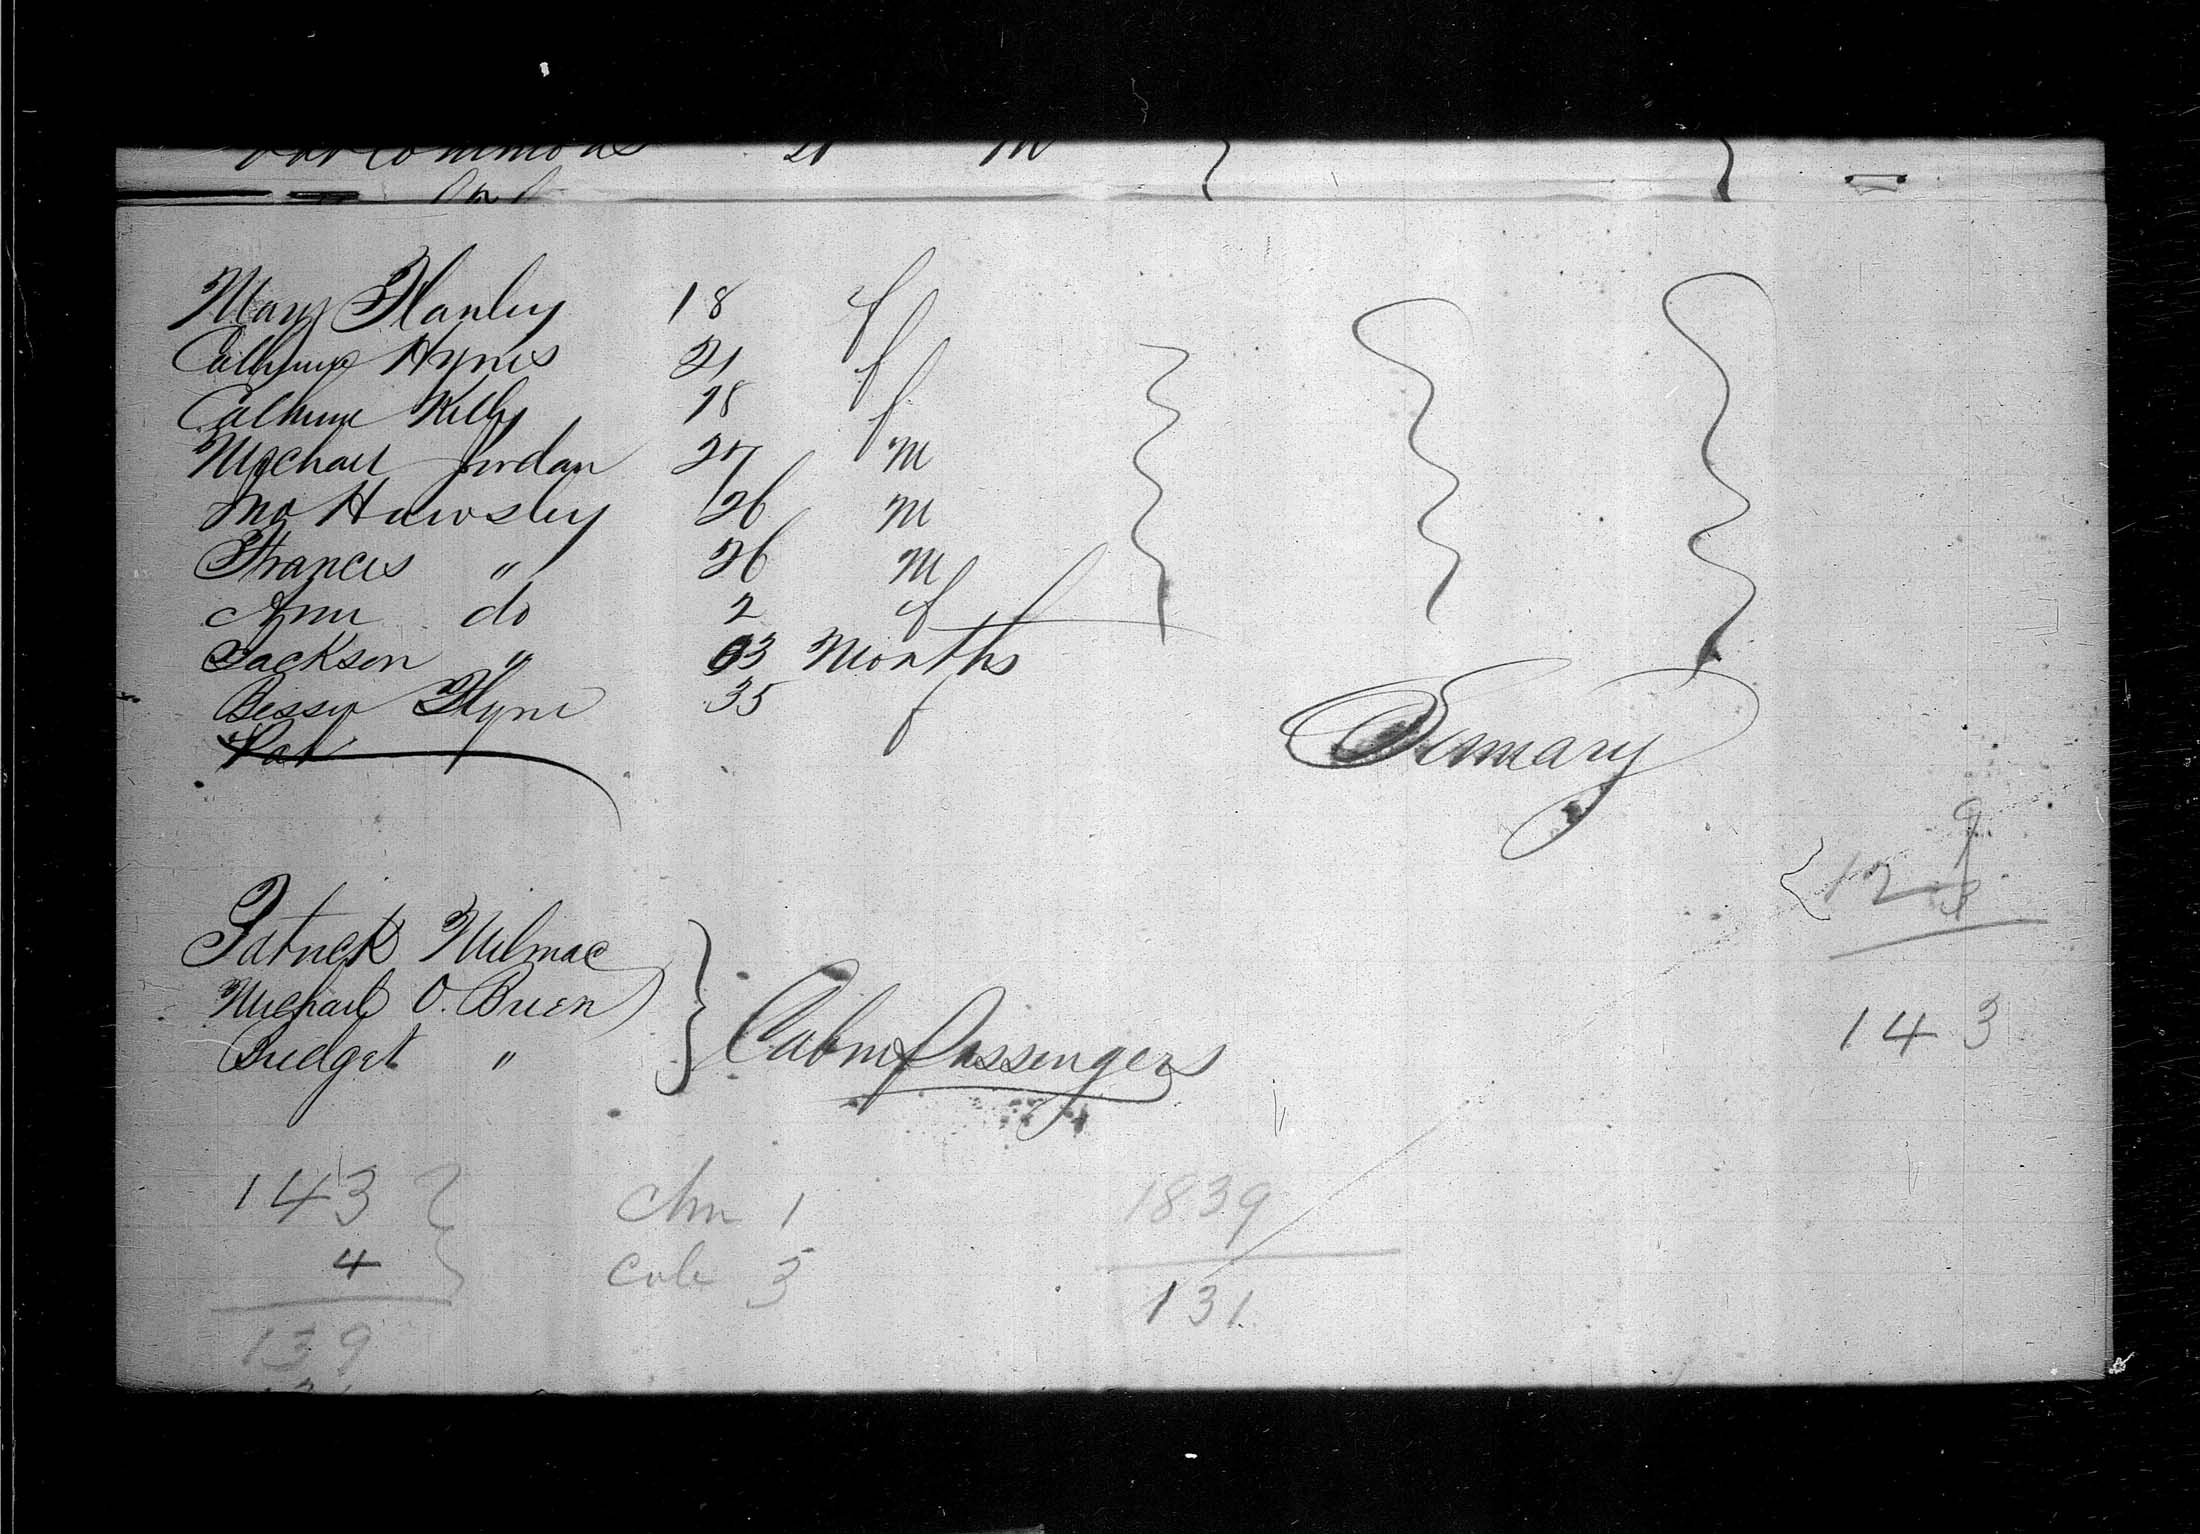 Pat Commons 21 M
Mary Hanley 18 f
Catherine Hynes 21 f
Catherine Kelly 18 f
Michael Jordan 27 M
Jno Hawsley 26 M
Francis " 26 M
Ann do 2 f
Jackson " 03 Months
Bessy Flynn 35 f
Pat
Patrick
Michael O. Brien
Bridget "
} Cabin Passengers
9
143
143
4
139
chn 1
cab 3
1839
131